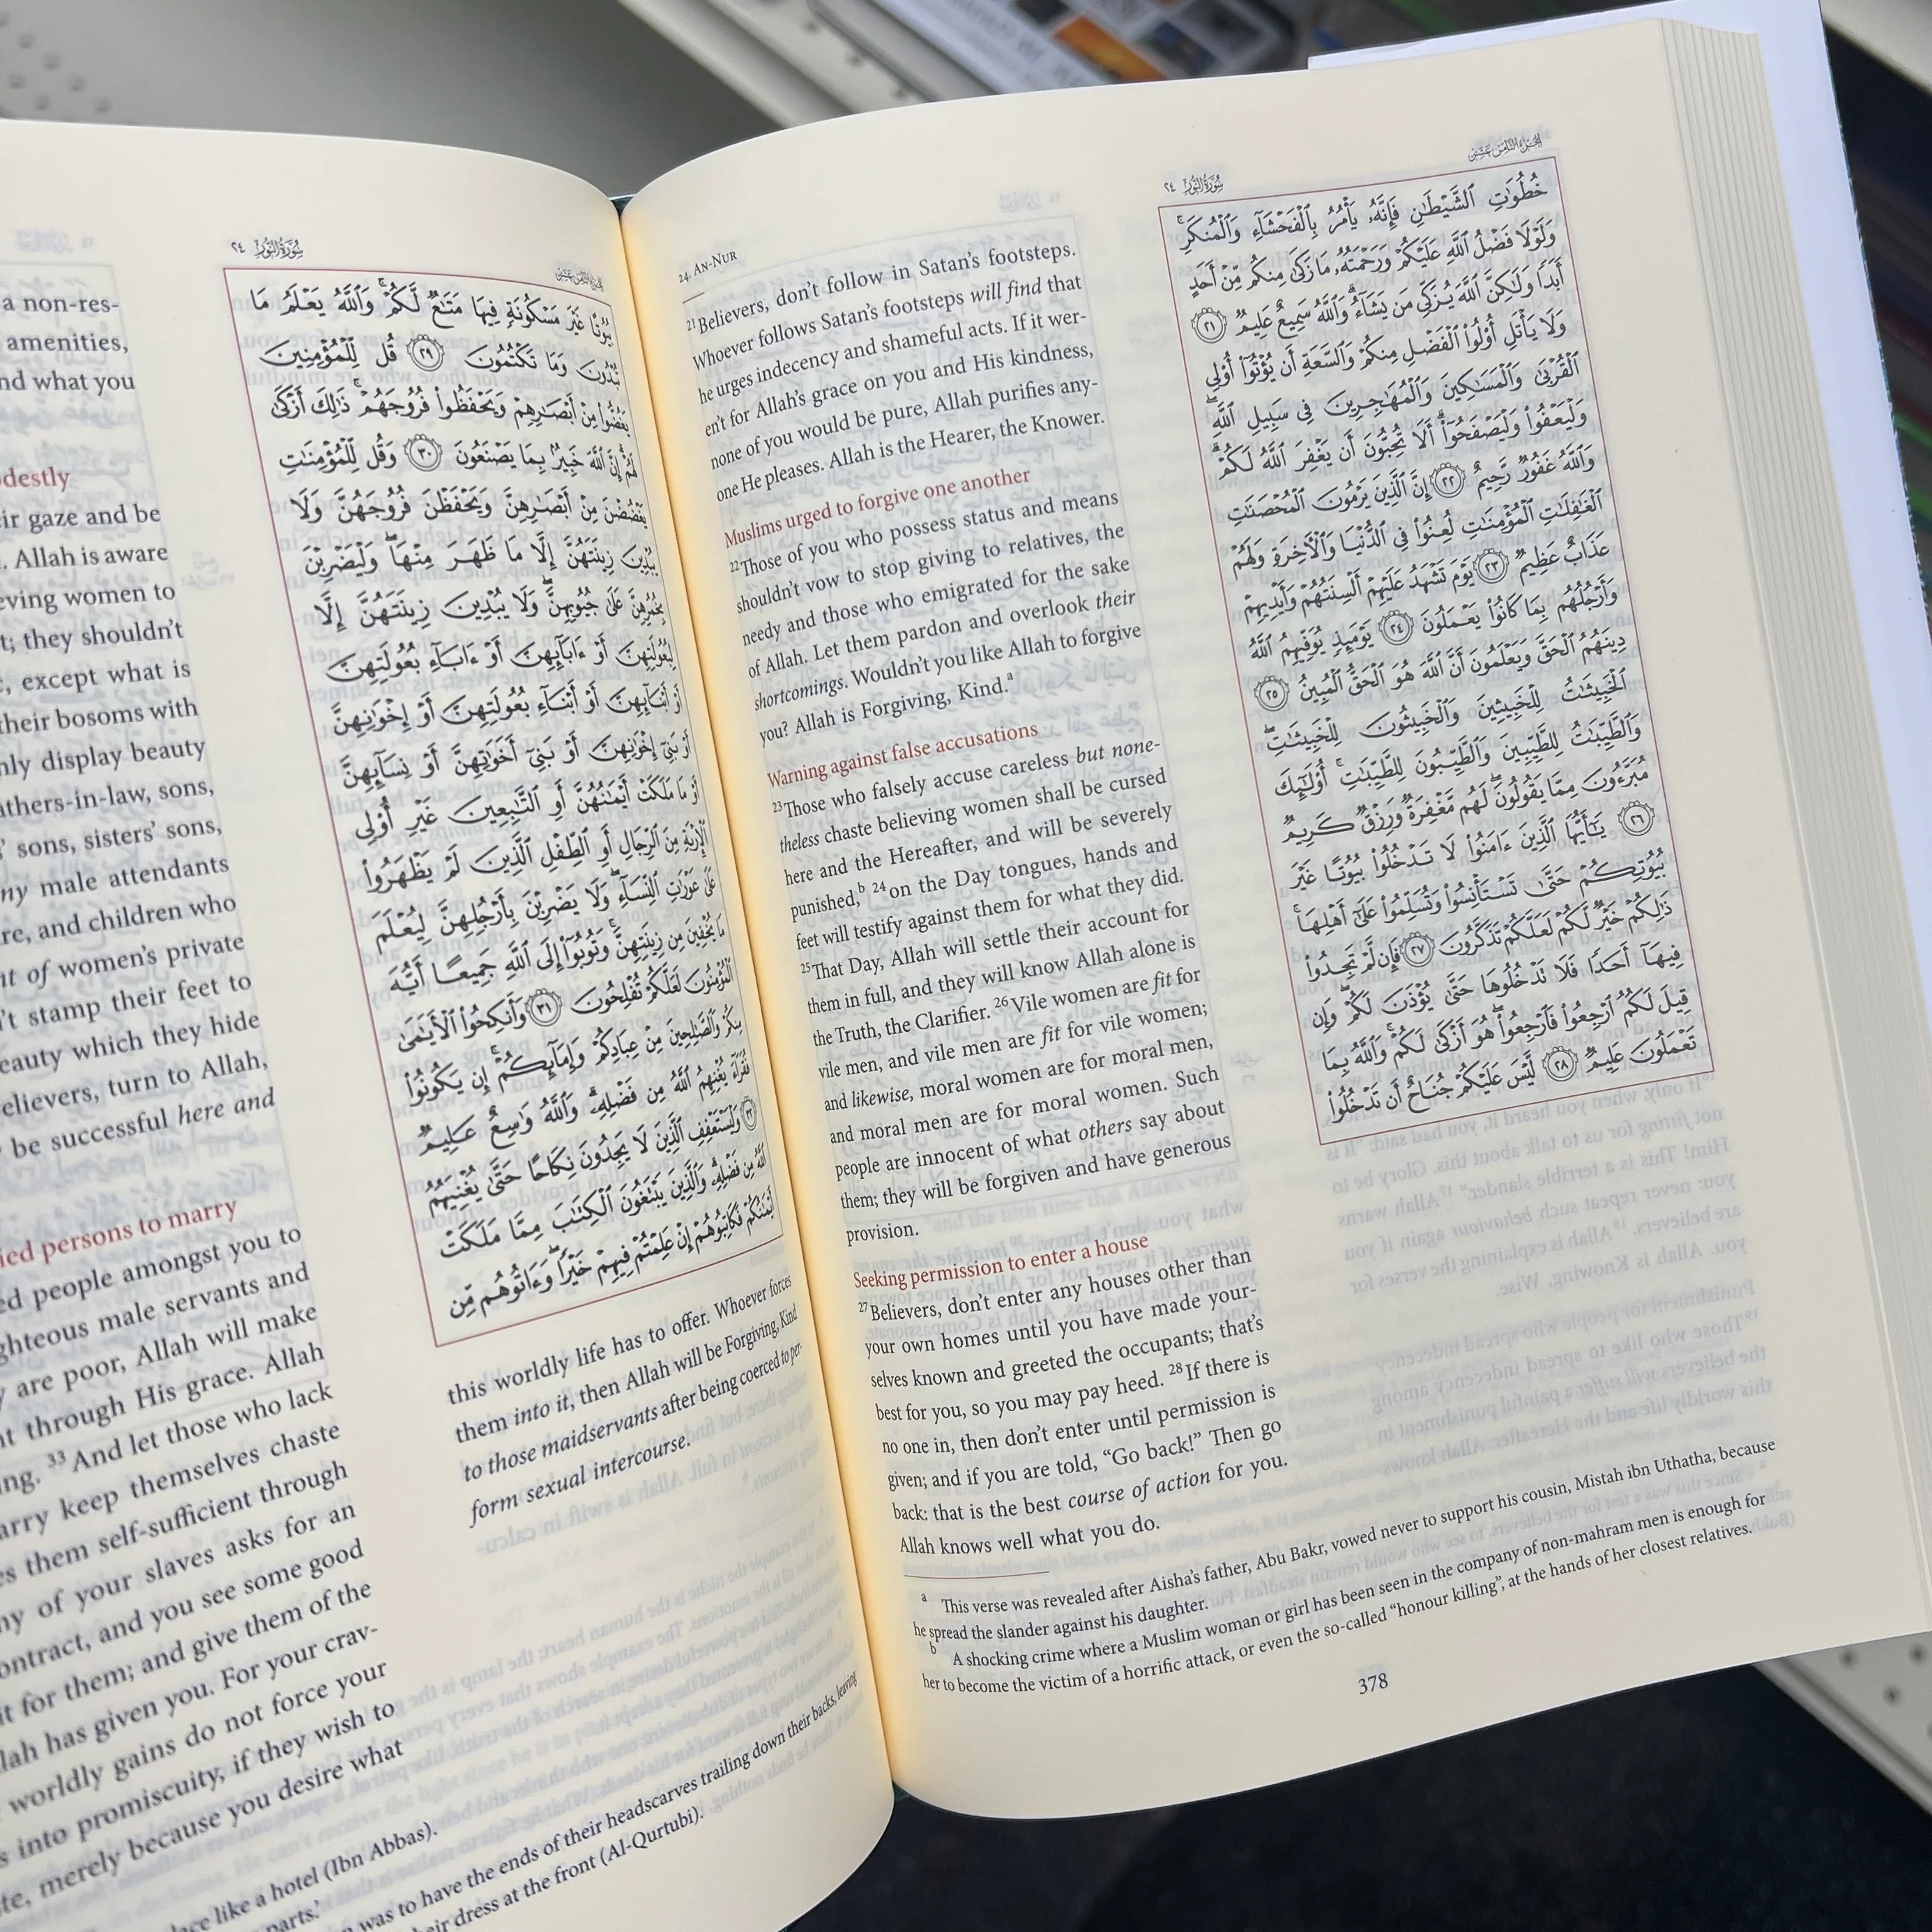 24. AN-NUR
²¹Believers, don't follow in Satan's footsteps.
Whoever follows Satan's footsteps will find that
he urges indecency and shameful acts. If it wer-
en't for Allah's grace on you and His kindness,
none of you would be pure, Allah purifies any-
one He pleases. Allah is the Hearer, the Knower.
Muslims urged to forgive one another
²²Those of you who possess status and means
shouldn't vow to stop giving to relatives, the
needy and those who emigrated for the sake
of Allah. Let them pardon and overlook their
shortcomings. Wouldn't you like Allah to forgive
you? Allah is Forgiving, Kind.ᵃ
Warning against false accusations
²³Those who falsely accuse careless but none-
theless chaste believing women shall be cursed
here and the Hereafter, and will be severely
punished,ᵇ ²⁴ on the Day tongues, hands and
feet will testify against them for what they did.
²⁵That Day, Allah will settle their account for
them in full, and they will know Allah alone is
the Truth, the Clarifier. ²⁶Vile women are fit for
vile men, and vile men are fit for vile women;
and likewise, moral women are for moral men,
and moral men are for moral women. Such
people are innocent of what others say about
them; they will be forgiven and have generous
provision.
Seeking permission to enter a house
²⁷Believers, don't enter any houses other than
your own homes until you have made your-
selves known and greeted the occupants; that's
best for you, so you may pay heed. ²⁸If there is
no one in, then don't enter until permission is
given; and if you are told, “Go back!” Then go
back: that is the best course of action for you.
Allah knows well what you do.
الجزء الثامن عشر
سورة النور ٢٤
خُطُوَٰتِ ٱلشَّيْطَٰنِ فَإِنَّهُۥ يَأْمُرُ بِٱلْفَحْشَآءِ وَٱلْمُنكَرِ ۚ
وَلَوْلَا فَضْلُ ٱللَّهِ عَلَيْكُمْ وَرَحْمَتُهُۥ مَا زَكَىٰ مِنكُم مِّنْ أَحَدٍ
أَبَدًا وَلَٰكِنَّ ٱللَّهَ يُزَكِّى مَن يَشَآءُ ۗ وَٱللَّهُ سَمِيعٌ عَلِيمٌ ٢١
وَلَا يَأْتَلِ أُو۟لُوا۟ ٱلْفَضْلِ مِنكُمْ وَٱلسَّعَةِ أَن يُؤْتُوٓا۟ أُو۟لِى
ٱلْقُرْبَىٰ وَٱلْمَسَٰكِينَ وَٱلْمُهَٰجِرِينَ فِى سَبِيلِ ٱللَّهِ ۖ
وَلْيَعْفُوا۟ وَلْيَصْفَحُوٓا۟ ۗ أَلَا تُحِبُّونَ أَن يَغْفِرَ ٱللَّهُ لَكُمْ ۗ
وَٱللَّهُ غَفُورٌ رَّحِيمٌ ٢٢ إِنَّ ٱلَّذِينَ يَرْمُونَ ٱلْمُحْصَنَٰتِ
ٱلْغَٰفِلَٰتِ ٱلْمُؤْمِنَٰتِ لُعِنُوا۟ فِى ٱلدُّنْيَا وَٱلْءَاخِرَةِ وَلَهُمْ
عَذَابٌ عَظِيمٌ ٢٣ يَوْمَ تَشْهَدُ عَلَيْهِمْ أَلْسِنَتُهُمْ وَأَيْدِيهِمْ
وَأَرْجُلُهُم بِمَا كَانُوا۟ يَعْمَلُونَ ٢٤ يَوْمَئِذٍ يُوَفِّيهِمُ ٱللَّهُ
دِينَهُمُ ٱلْحَقَّ وَيَعْلَمُونَ أَنَّ ٱللَّهَ هُوَ ٱلْحَقُّ ٱلْمُبِينُ ٢٥
ٱلْخَبِيثَٰتُ لِلْخَبِيثِينَ وَٱلْخَبِيثُونَ لِلْخَبِيثَٰتِ ۖ
وَٱلطَّيِّبَٰتُ لِلطَّيِّبِينَ وَٱلطَّيِّبُونَ لِلطَّيِّبَٰتِ ۚ أُو۟لَٰٓئِكَ
مُبَرَّءُونَ مِمَّا يَقُولُونَ ۖ لَهُم مَّغْفِرَةٌ وَرِزْقٌ كَرِيمٌ
٢٦ يَٰٓأَيُّهَا ٱلَّذِينَ ءَامَنُوا۟ لَا تَدْخُلُوا۟ بُيُوتًا غَيْرَ
بُيُوتِكُمْ حَتَّىٰ تَسْتَأْنِسُوا۟ وَتُسَلِّمُوا۟ عَلَىٰٓ أَهْلِهَا ۚ
ذَٰلِكُمْ خَيْرٌ لَّكُمْ لَعَلَّكُمْ تَذَكَّرُونَ ٢٧ فَإِن لَّمْ تَجِدُوا۟
فِيهَآ أَحَدًا فَلَا تَدْخُلُوهَا حَتَّىٰ يُؤْذَنَ لَكُمْ ۖ وَإِن
قِيلَ لَكُمُ ٱرْجِعُوا۟ فَٱرْجِعُوا۟ ۖ هُوَ أَزْكَىٰ لَكُمْ ۚ وَٱللَّهُ بِمَا
تَعْمَلُونَ عَلِيمٌ ٢٨ لَّيْسَ عَلَيْكُمْ جُنَاحٌ أَن تَدْخُلُوا۟
ᵃ This verse was revealed after Aisha's father, Abu Bakr, vowed never to support his cousin, Mistah ibn Uthatha, because
he spread the slander against his daughter.
ᵇ A shocking crime where a Muslim woman or girl has been seen in the company of non-mahram men is enough for
her to become the victim of a horrific attack, or even the so-called “honour killing”, at the hands of her closest relatives.
378
a non-res-
amenities,
nd what you
destly
eir gaze and be
. Allah is aware
eving women to
t; they shouldn't
, except what is
their bosoms with
nly display beauty
athers-in-law, sons,
' sons, sisters' sons,
ny male attendants
re, and children who
nt of women's private
't stamp their feet to
eauty which they hide
elievers, turn to Allah,
be successful here and
ied persons to marry
ed people amongst you to
ghteous male servants and
y are poor, Allah will make
nt through His grace. Allah
ng. ³³And let those who lack
arry keep themselves chaste
es them self-sufficient through
ny of your slaves asks for an
ontract, and you see some good
it for them; and give them of the
lah has given you. For your crav-
worldly gains do not force your
s into promiscuity, if they wish to
te, merely because you desire what
الجزء الثامن عشر
سورة النور ٢٤
بُيُوتًا غَيْرَ مَسْكُونَةٍ فِيهَا مَتَٰعٌ لَّكُمْ ۚ وَٱللَّهُ يَعْلَمُ مَا
تُبْدُونَ وَمَا تَكْتُمُونَ ٢٩ قُل لِّلْمُؤْمِنِينَ
يَغُضُّوا۟ مِنْ أَبْصَٰرِهِمْ وَيَحْفَظُوا۟ فُرُوجَهُمْ ۚ ذَٰلِكَ أَزْكَىٰ
لَهُمْ ۗ إِنَّ ٱللَّهَ خَبِيرٌۢ بِمَا يَصْنَعُونَ ٣٠ وَقُل لِّلْمُؤْمِنَٰتِ
يَغْضُضْنَ مِنْ أَبْصَٰرِهِنَّ وَيَحْفَظْنَ فُرُوجَهُنَّ وَلَا
يُبْدِينَ زِينَتَهُنَّ إِلَّا مَا ظَهَرَ مِنْهَا ۖ وَلْيَضْرِبْنَ
بِخُمُرِهِنَّ عَلَىٰ جُيُوبِهِنَّ ۖ وَلَا يُبْدِينَ زِينَتَهُنَّ إِلَّا
لِبُعُولَتِهِنَّ أَوْ ءَابَآئِهِنَّ أَوْ ءَابَآءِ بُعُولَتِهِنَّ
أَوْ أَبْنَآئِهِنَّ أَوْ أَبْنَآءِ بُعُولَتِهِنَّ أَوْ إِخْوَٰنِهِنَّ
أَوْ بَنِىٓ إِخْوَٰنِهِنَّ أَوْ بَنِىٓ أَخَوَٰتِهِنَّ أَوْ نِسَآئِهِنَّ
أَوْ مَا مَلَكَتْ أَيْمَٰنُهُنَّ أَوِ ٱلتَّٰبِعِينَ غَيْرِ أُو۟لِى
ٱلْإِرْبَةِ مِنَ ٱلرِّجَالِ أَوِ ٱلطِّفْلِ ٱلَّذِينَ لَمْ يَظْهَرُوا۟
عَلَىٰ عَوْرَٰتِ ٱلنِّسَآءِ ۖ وَلَا يَضْرِبْنَ بِأَرْجُلِهِنَّ لِيُعْلَمَ
مَا يُخْفِينَ مِن زِينَتِهِنَّ ۚ وَتُوبُوٓا۟ إِلَى ٱللَّهِ جَمِيعًا أَيُّهَ
ٱلْمُؤْمِنُونَ لَعَلَّكُمْ تُفْلِحُونَ ٣١ وَأَنكِحُوا۟ ٱلْأَيَٰمَىٰ
مِنكُمْ وَٱلصَّٰلِحِينَ مِنْ عِبَادِكُمْ وَإِمَآئِكُمْ ۚ إِن يَكُونُوا۟
فُقَرَآءَ يُغْنِهِمُ ٱللَّهُ مِن فَضْلِهِۦ ۗ وَٱللَّهُ وَٰسِعٌ عَلِيمٌ
٣٢ وَلْيَسْتَعْفِفِ ٱلَّذِينَ لَا يَجِدُونَ نِكَاحًا حَتَّىٰ يُغْنِيَهُمُ
ٱللَّهُ مِن فَضْلِهِۦ ۗ وَٱلَّذِينَ يَبْتَغُونَ ٱلْكِتَٰبَ مِمَّا مَلَكَتْ
أَيْمَٰنُكُمْ فَكَاتِبُوهُمْ إِنْ عَلِمْتُمْ فِيهِمْ خَيْرًا ۖ وَءَاتُوهُم مِّن
this worldly life has to offer. Whoever forces
them into it, then Allah will be Forgiving, Kind
to those maidservants after being coerced to per-
form sexual intercourse.
lace like a hotel (Ibn Abbas).
parts.'
n was to have the ends of their headscarves trailing down their backs, leaving
heir dress at the front (Al-Qurtubi).